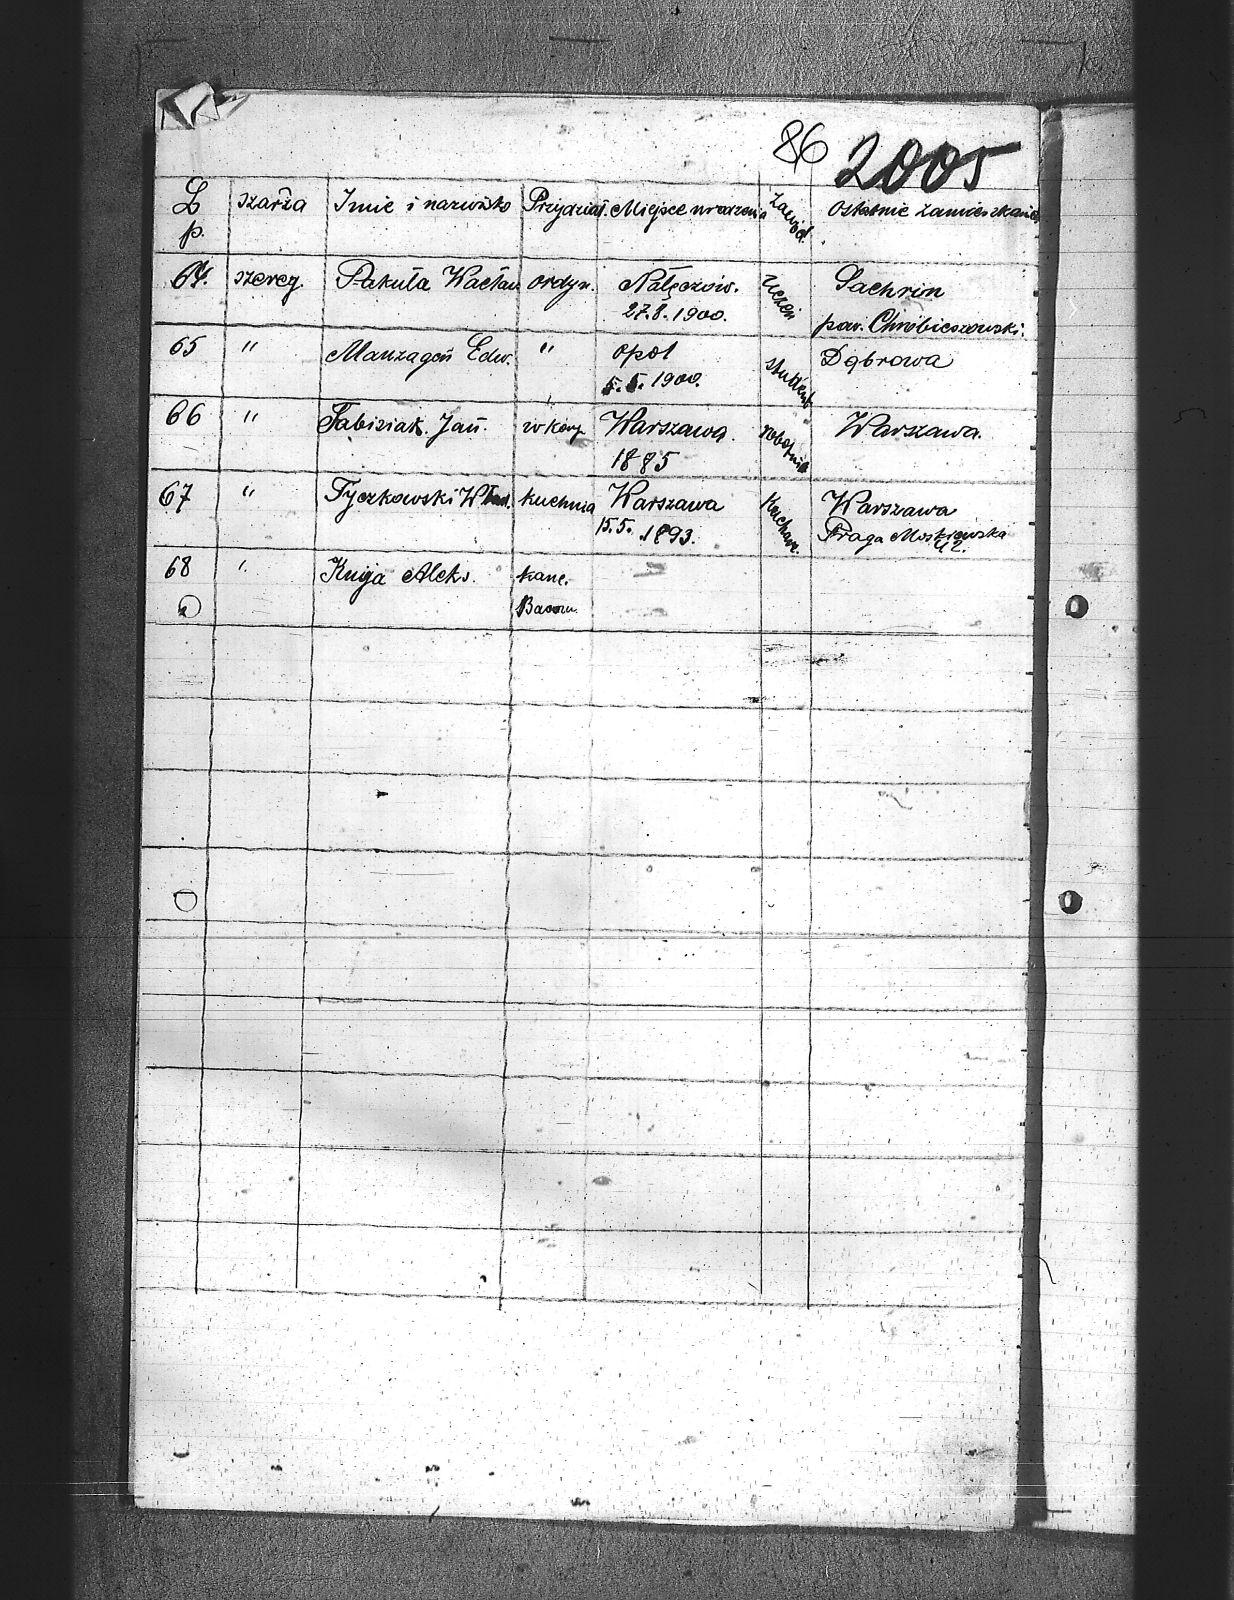 86 2005
L p. szarża Imie i nazwisko Przydział. Miejsce urodzenia Zawód. Ostatnie zamieszkanie
64. szereg. Pakuła Wacław ordyn. Nałęczów. 27.8.1900. uczeń Sachrin pow. Chrobieszowski.
65 " Edw. " opol 5.5.1900. student Dąbrowa
66 " Fabisiak Jan. Warszawa. 1885 robotnik Warszawa.
67 " Tyczkowski Wład. kuchnia Warszawa 15.5.1893. Kucharz. Warszawa Praga Moskiewska 42.
68 " Aleks. kanc.